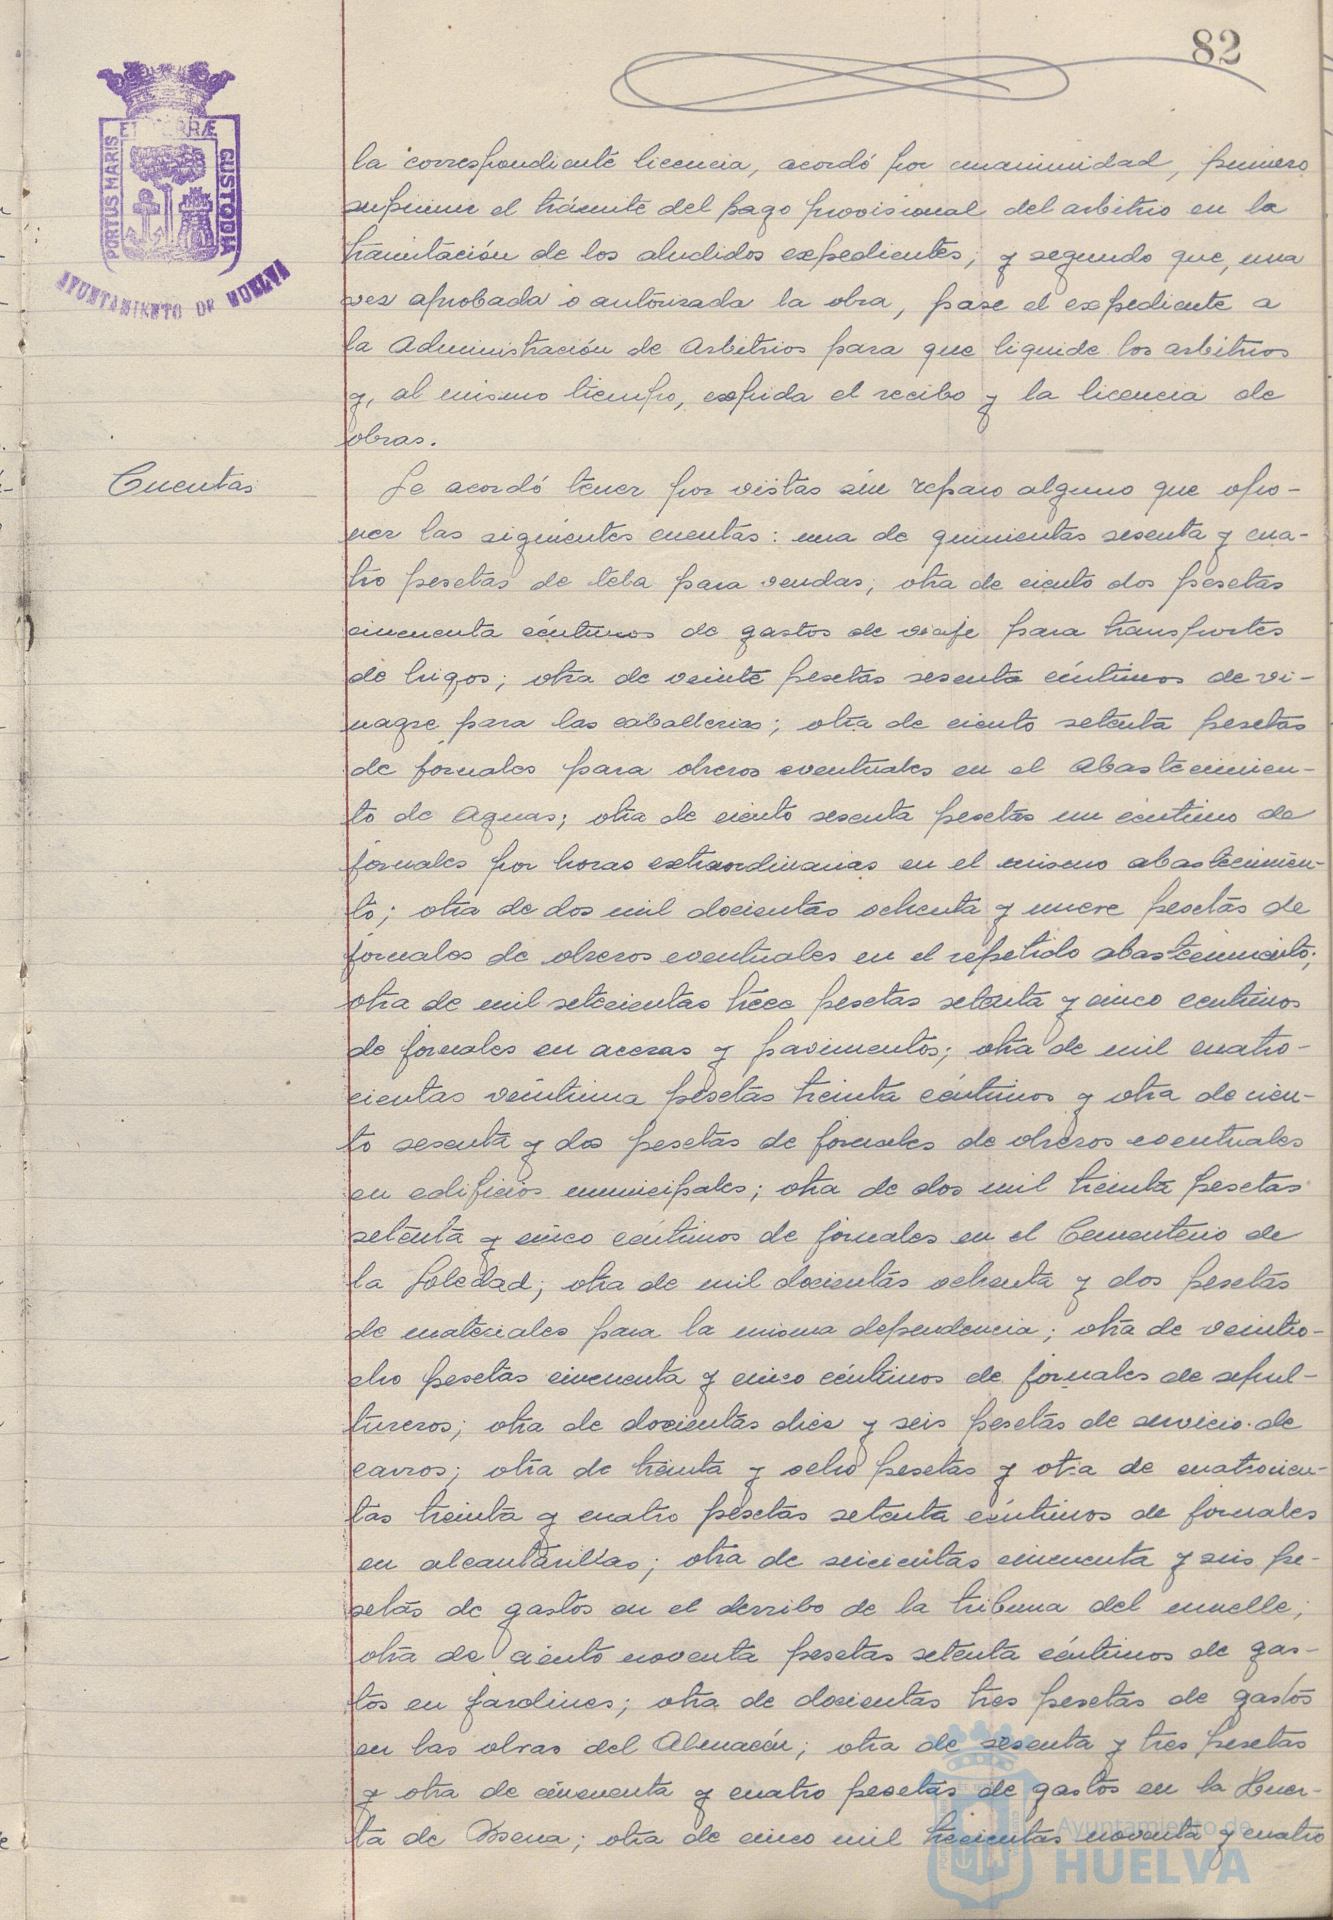 82
PORTUS MARIS
ET TERRÆ
CUSTODIA
AYUNTAMIENTO DE HUELVA
la correspondiente licencia, acordó por unanimidad, primero
suprimir el trámite del pago provisional del arbitrio en la
tramitación de los aludidos expedientes; y segundo que, una
vez aprobada o autorizada la obra, pase el expediente a
la Administración de Arbitrios para que liquide los arbitrios
y, al mismo tiempo, expida el recibo y la licencia de
obras.
Cuentas
Se acordó tener por vistas sin reparo alguno que opo-
ner las siguientes cuentas: una de quinientas sesenta y cua-
tro pesetas de tela para vendas; otra de ciento dos pesetas
cincuenta céntimos de gastos de viaje para transportes
de trigos; otra de veinte pesetas sesenta céntimos de vi-
nagre para las caballerias; otra de ciento setenta pesetas
de jornales para obreros eventuales en el Abastecimien-
to de Aguas; otra de ciento sesenta pesetas un céntimo de
jornales por horas extraordinarias en el mismo abastecimien-
to; otra de dos mil docientas ochenta y nueve pesetas de
jornales de obreros eventuales en el repetido abastecimiento;
otra de mil setecientas trece pesetas setenta y cinco centimos
de jornales en aceras y pavimentos; otra de mil cuatro-
cientas veintiuna pesetas treinta céntimos y otra de cien-
to sesenta y dos pesetas de jornales de obreros eventuales
en edificios municipales; otra de dos mil treinta pesetas
setenta y cinco céntimos de jornales en el Cementerio de
la Soledad; otra de mil docientas ochenta y dos pesetas
de materiales para la misma dependencia; otra de veintio-
cho pesetas cincuenta y cinco céntimos de jornales de sepul-
tureros; otra de docientas diez y seis pesetas de servicio de
carros; otra de treinta y ocho pesetas y otra de cuatrocien-
tas treinta y cuatro pesetas setenta céntimos de jornales
en alcantarillas; otra de seicientas cincuenta y seis pe-
setas de gastos en el derribo de la tribuna del muelle;
otra de ciento noventa pesetas setenta céntimos de gas-
tos en jardines; otra de docientas tres pesetas de gastos
en las obras del Almacén; otra de sesenta y tres pesetas
y otra de cincuenta y cuatro pesetas de gastos en la Huer-
ta de Mena; otra de cinco mil trecientas noventa y cuatro
Ayuntamiento de
HUELVA